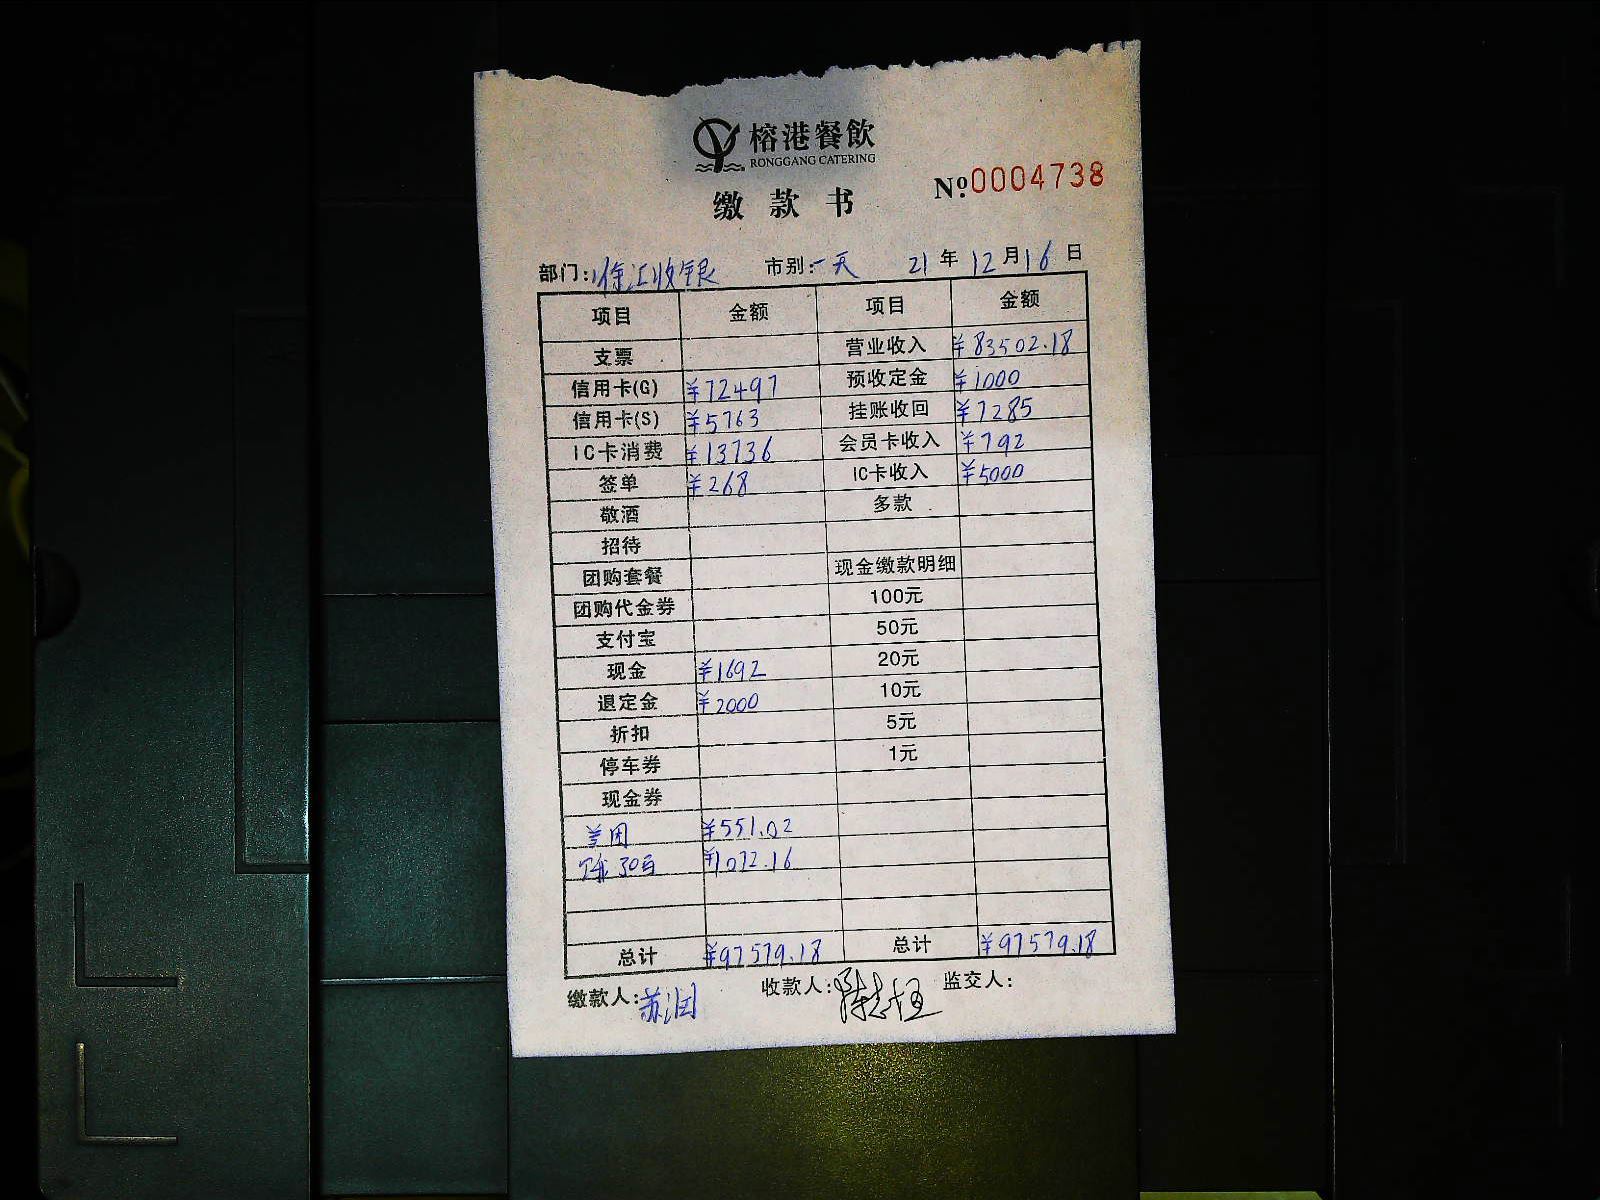 榕港餐飲
RONGGANG CATERING
缴款书 №0004738
部门: 徐汇收银 市别: 一天 21年12月16日
项目 金额 项目 金额
支票 营业收入 ¥83502.18
信用卡(G) ¥72497 预收定金 ¥1000
信用卡(S) ¥5763 挂账收回 ¥7285
IC卡消费 ¥13736 会员卡收入 ¥792
签单 ¥268 IC卡收入 ¥5000
敬酒 多款
招待
团购套餐 现金缴款明细
团购代金券 100元
支付宝 50元
现金 ¥1692 20元
退定金 ¥2000 10元
折扣 5元
停车券 1元
现金券
美团 ¥551.02
¥1072.16
总计 ¥97579.18 总计 ¥97579.18
缴款人: 苏润 收款人: 陈志恒 监交人: